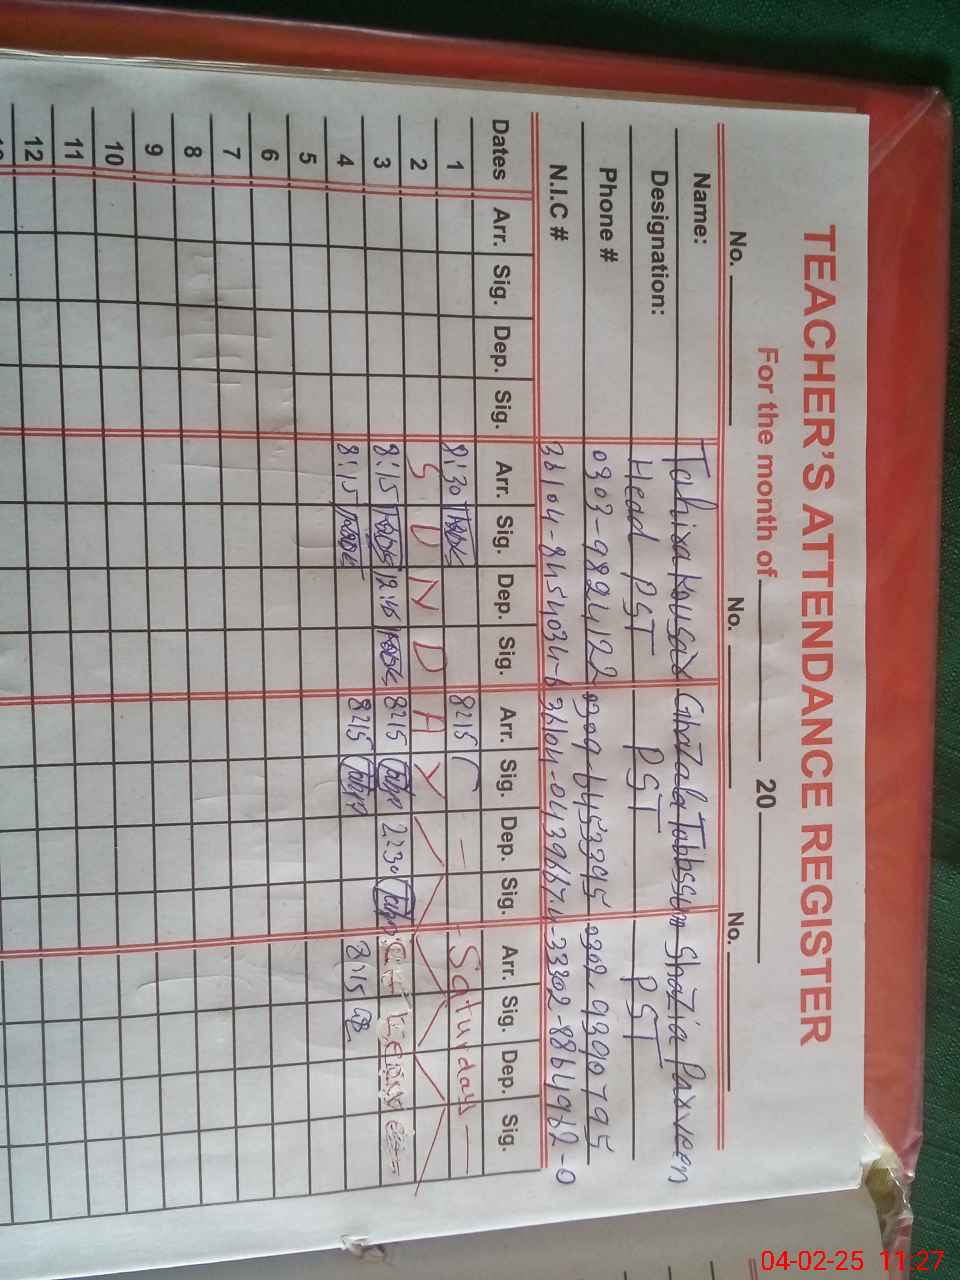 TEACHER'S ATTENDANCE REGISTER
For the month of 20
No. No. No.
Name: Tahira Kousar Ghazala Tabbssum Shazia Parveen
Designation: Head PST PST PST
Phone # 0303-9824122 0309-6453395 0302-9390795
N.I.C # 36104-8454034-6 36104-0439667-4 33302-8864962-0
Dates Arr. Sig. Dep. Sig. Arr. Sig. Dep. Sig. Arr. Sig. Dep. Sig. Arr. Sig. Dep. Sig.
1 8:30 8:15 - Saturday -
2 S U N D A Y
3 8:15 12:45 8:15 2:30
4 8:15 8:15 8:15
5
6
7
8
9
10
11
12
04-02-25 11:27